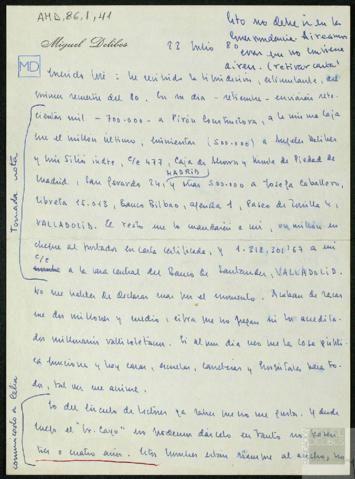 AMD, 86, 1, 41
Esto no debe ir en la
correspondencia. Aireamos
cosas que no conviene
airear. (retirar carta)
Miguel Delibes
MD
22 Julio 80
Querido José: he recibido la liquidación, estimulante, del
primer semestre del 80. En su día - setiembre - enviaréis sete-
cientas mil - 700.000 - a Pirón Constructora, a la misma caja
que el millón último, quinientas (500.000) a Angeles Delibes
y mi Silia c/c 477, Caja de Ahorros y Monte de Piedad de
MADRID
Madrid, San Gerardo 24, y otras 500.000 a Josefa Caballero,
libreta 15.013, Banco Bilbao, agencia 1, Paseo de Zorrilla 4,
VALLADOLID. El resto me lo mandaréis a mí, un millón en
cheque al portador en carta certificada, y 1.212,301'67 a mi
c/c a la central del Banco de Santander, VALLADOLID.
No me hables de declarar más por el momento. Acaban de sacar-
me dos millones y medio, cifra que no pagan ni los acredita-
dos millonarios vallisoletanos. Si al un día veo que la cosa pública
funciona y hay casas, escuelas, carreteras y hospitales para to-
dos, tal vez me anime.
Lo del Círculo de Lectores ya sabes que no me gusta. Y desde
luego el "Sr. Cayo" no podemos dárselo en tanto no pasen
tres o cuatro años. Estos hombres están siempre al acecho, no
Tomada nota
comunicado a Celia